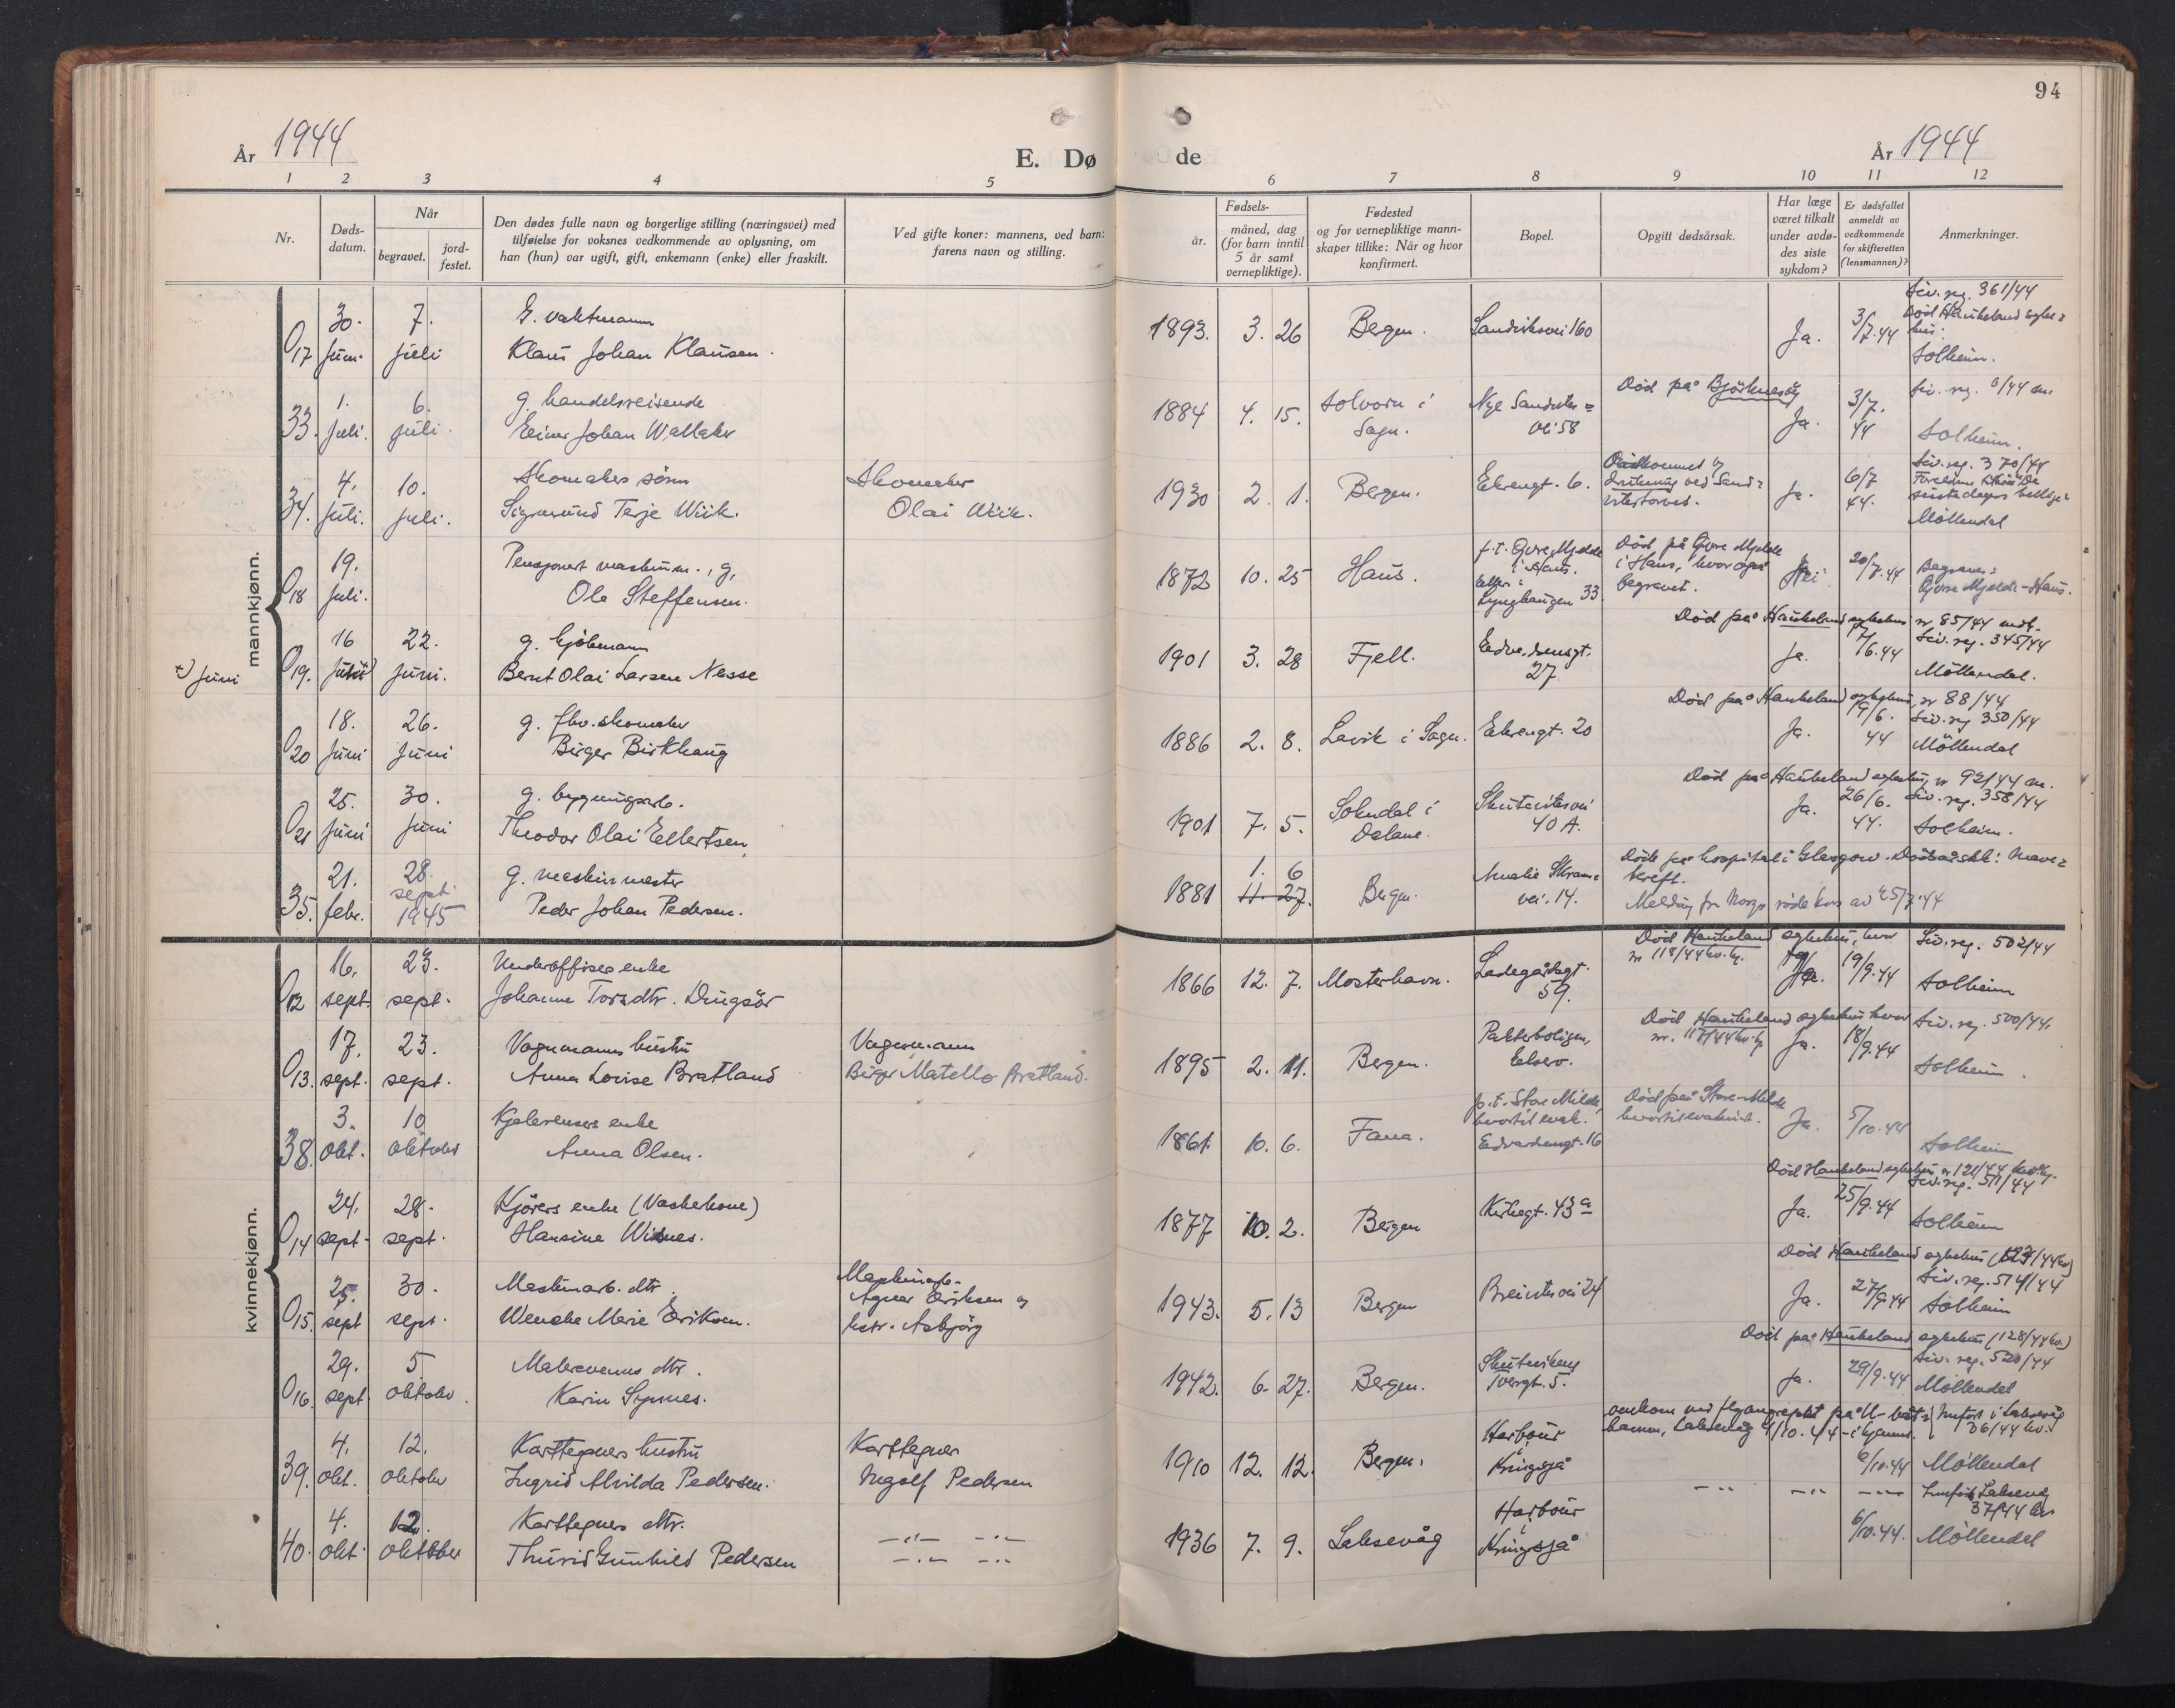 94
År 1944
E. Dø de
År 1944
1 2 3 4 5 6 7 8 9 10 11 12
Nr.
Døds-
datum.
Når
begravet.
jord-
festet.
Den dødes fulle navn og borgerlige stilling (næringsvei) med
tilføielse for voksnes vedkommende av oplysning, om
han (hun) var ugift, gift, enkemann (enke) eller fraskilt.
Ved gifte koner: mannens, ved barn:
farens navn og stilling.
Fødsels-
år.
måned, dag
(for barn inntil
5 år samt
vernepliktige).
Fødested
og for vernepliktige mann-
skaper tillike: Når og hvor
konfirmert.
Bopel.
Opgitt dødsårsak.
Har læge
været tilkalt
under avdø-
des siste
sykdom?
Er dødsfallet
anmeldt av
vedkommende
for skifteretten
(lensmannen)?
Anmerkninger.
mannkjønn.
361/44
30. 7. G. vaktmann
017 juni juli Klaus Johan Klausen. 1893. 3. 26 Bergen. Sandviksvei 160 Ja. 3/7.44
Solheim.
1. 6. g. handelsreisende Død på
33. juli. juli. Einar Johan Wallaker 1884 4. 15. Solvorn i Sogn. Ja. 3/7. 44
Solheim.
4. 10. Skomakers sønn Skomaker 370/44
34. juli. juli. Sigmund Terje Wiik. Olai Wiik. 1930 2. 1. Bergen. Ekrengt. 6. Ja. 6/7 44.
Møllendal
19. Pensjonert maskinm., g,
018 juli. Ole Steffensen. 1872 10. 25 Haus. f.t. Øvre Mjelde i Haus. Lynghaugen 33. Død på Øvre Mjelde i Haus, hvor også begravet. Nei 20/7.44 Begravet: Øvre Mjelde - Haus.
x) juni
16 22. g. Død på Haukeland sykehus nr 85/44
019. juni x) juni. Bernt Olai Larsen Nesse 1901 3. 28 Fjell. 27 Ja. 17/6.44 345/44
Møllendal.
18. 26. g. fhv. skomaker Død på Haukeland sykehus, nr 88/44
020 juni juni Birger Birkhaug 1886 2. 8. Lavik i Sogn. Ekrengt. 20 Ja. 19/6. 44 350/44
Møllendal
25. 30. g. bygningsarb. Død på Haukeland sykehus, nr 92/44 m.
021 juni juni Theodor Olai Ellertsen 1901 7. 5. Sokndal i Dalane. Skuteviksvei 40 A. Ja. 26/6. 44. 358/44
Solheim.
21. 28. g. maskinmester 1. 6 Døde på hospital i Glasgow. Dødsårsak: Mave-
35. febr. sept. 1945 Peder Johan Pedersen. 1881 11. 27. Bergen. Amalie Skrams vei. 14. kreft.
Melding fra Norges røde kors av 25/7.44
kvinnekjønn.
16. 23. Underoffisers enke Død Haukeland sykehus, 502/44
012 sept. sept. Johanne Torsdtr. Dingsør 1866 12. 7. Mosterhavn. Ladegårdsgt. 59. nr 118/44 Ja. 19/9.44 Solheim
17. 23. Vognmanns hustru Vognmann Død Haukeland sykehus 500/44.
013. sept. sept. Anna Lovise Bratland Birger Matello Bratland. 1895 2. 11. Bergen. nr. 117/44 Ja. 18/9.44 Solheim.
3. 10 enke p.t. Store Milde, Død på Store-Milde
38. okt. oktober Anna Olsen. 1861. 10. 6. Fana. Edvardsengt. 16 Ja. 5/10.44 Solheim
24. 28. Kjørers enke (Vaskekone) Død Haukeland sykehus nr 121/44
014 sept. sept. Hansine Wisnes. 1877 10. 2. Bergen Kirkegt. 43 a Ja. 25/9.44 511/44
Solheim
25. 30. Maskinarb. dtr. Maskinarb. Død Haukeland sykehus
015. sept sept. Wenche Marie Eriksen. Agnar Eriksen og hstr. Asbjørg 1943. 5. 13 Bergen Breiviksvei 24 Ja. 27/9.44 514/44
Solheim
29. 5 Malersvenns dtr. Død på Haukeland sykehus (128/44 kv)
016. sept. oktober. Karin Synnes. 1942. 6. 27. Bergen. Skutevikens Tverrgt. 5. Ja. 29/9.44 520/44
Møllendal
4. 12. Karttegners hustru Karttegner omkom ved flyangrepet på U-båt-
39. okt. oktober Ingrid Alvilda Pedersen. Ingolf Pedersen 1910 12. 12. Bergen. Harbour Kringsjå Laksevåg 4/10.44 - i hjemmet. 36/44 kv.
6/10.44 Møllendal
4. 12. Karttegners dtr. Laksevåg
40. okt. oktober Thurid Gunhild Pedersen 1936 7. 9. Laksevåg Harbour Kringsjå 6/10.44. 37/44
Møllendal